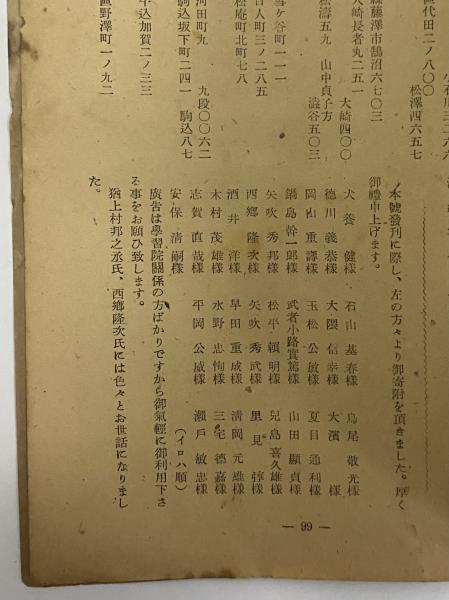 直代田二ノ八〇〇
松澤四六五七
縣藤澤市鵠沼六七〇三
大崎長者丸二五一
大崎四〇〇
松濤五九 山中貞子方
澁谷五〇三
雪ケ谷町一一一
百人町三ノ二八五
松庵町北町七八
河田町九
九段〇〇六二
駒込坂下町二四一 駒込八七
牛込加賀二ノ三三
區野澤町一ノ九二
本號發刊に際し、左の方々より御寄附を頂きました。厚く
御禮申上げます。
犬養 健樣 石山 基春樣 鳥尾 敬光樣
德川 義恭樣 大隈 信幸樣 大濱 樣
岡山 重譯樣 玉松 公敏樣 夏目 通利樣
鍋島 幹一郎樣 武者小路實篤樣 山田 顯貞樣
矢吹 秀邦樣 松平 賴明樣 兒島喜久雄樣
西鄕 隆次樣 矢吹 秀武樣 里見 弴樣
酒井 洋樣 早田 重成樣 淸岡 元雄樣
木村 茂雄樣 水野 忠恂樣 三宅 德嘉樣
志賀 直哉樣 平岡 公威樣 瀨戶 敏忠樣
安保 淸嗣樣 (イロハ順)
廣告は學習院關係の方ばかりですから御氣輕に御利用下さ
る事をお願ひ致します。
猶上村邦之丞氏、西鄕隆次氏には色々とお世話になりまし
た。
— 99 —